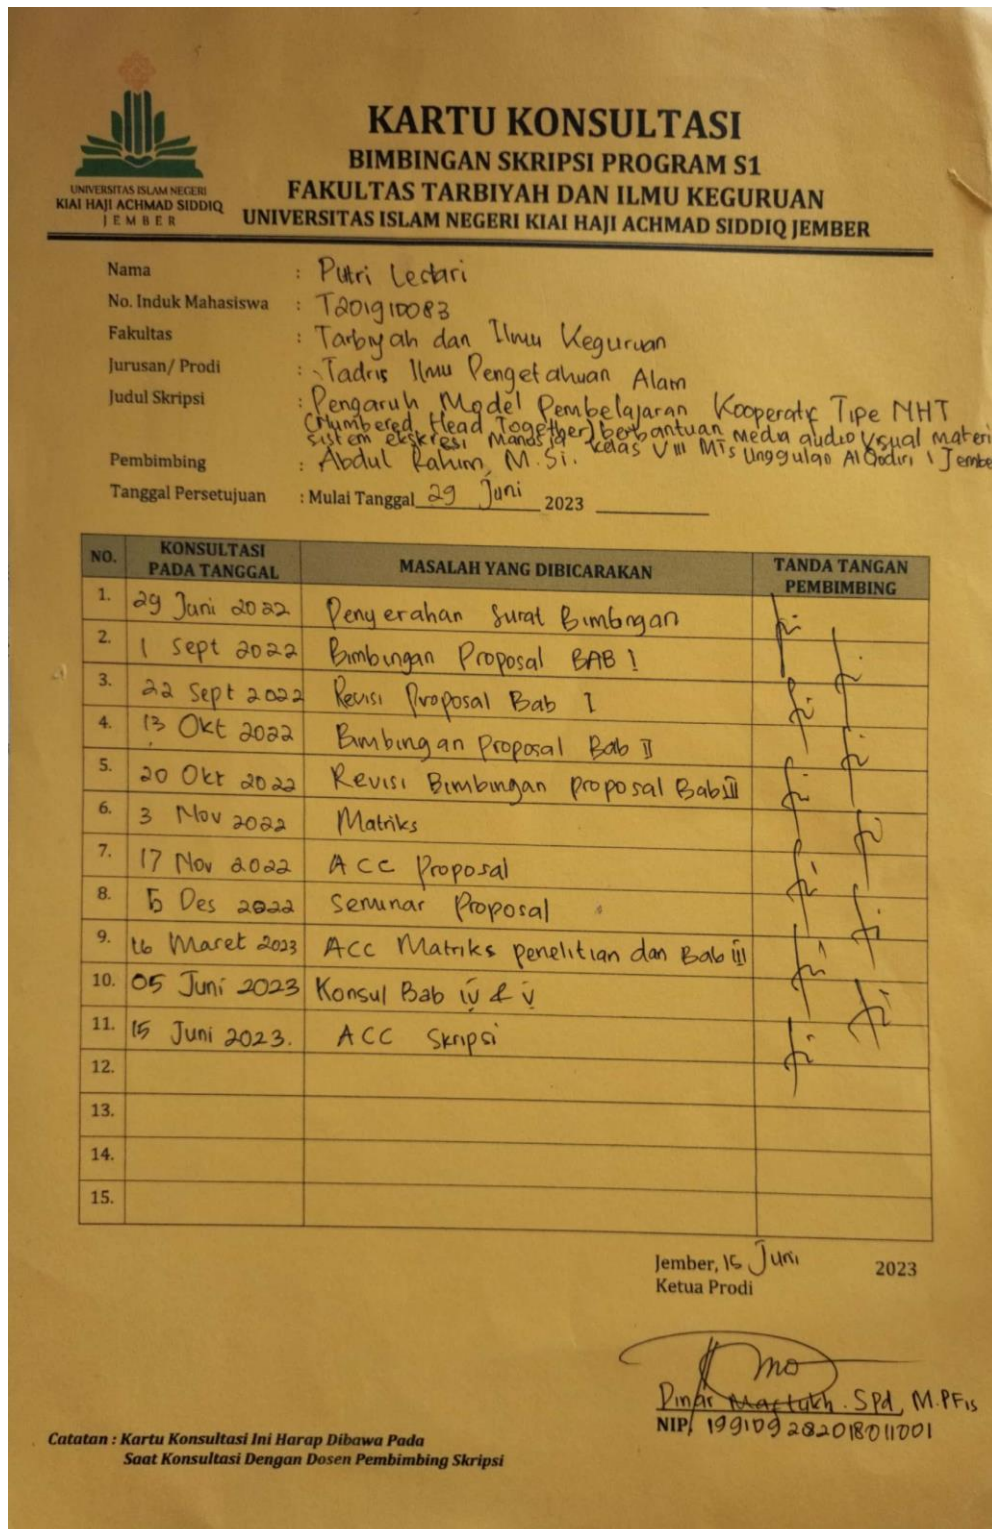 UNIVERSITAS ISLAM NEGERI
KIAI HAJI ACHMAD SIDDIQ
JEMBER
KARTU KONSULTASI
BIMBINGAN SKRIPSI PROGRAM S1
FAKULTAS TARBIYAH DAN ILMU KEGURUAN
UNIVERSITAS ISLAM NEGERI KIAI HAJI ACHMAD SIDDIQ JEMBER
Nama : Putri Lestari
No. Induk Mahasiswa : T201910083
Fakultas : Tarbiyah dan Ilmu Keguruan
Jurusan/ Prodi : Tadris Ilmu Pengetahuan Alam
Judul Skripsi : Pengaruh Model Pembelajaran Kooperatif Tipe NHT
(Numbered Head Together) berbantuan media audio visual materi
sistem ekskresi manusia kelas VIII MTs Unggulan Al Qodiri 1 Jember
Pembimbing : Abdul Rahim, M.Si.
Tanggal Persetujuan : Mulai Tanggal 29 Juni 2023
NO. KONSULTASI PADA TANGGAL MASALAH YANG DIBICARAKAN TANDA TANGAN PEMBIMBING
1. 29 Juni 2022 Penyerahan Surat Bimbngan
2. 1 Sept 2022 Bimbingan Proposal BAB I
3. 22 Sept 2022 Revisi Proposal Bab I
4. 13 Okt 2022 Bimbingan Proposal Bab II
5. 20 Okt 2022 Revisi Bimbingan proposal Bab III
6. 3 Nov 2022 Matriks
7. 17 Nov 2022 ACC Proposal
8. 5 Des 2022 Seminar Proposal
9. 16 Maret 2023 ACC Matriks penelitian dan Bab III
10. 05 Juni 2023 Konsul Bab iv & v
11. 15 Juni 2023. ACC Skripsi
12.
13.
14.
15.
Jember, 15 Juni 2023
Ketua Prodi
Dinar Maftukh. SPd, M.PFis
NIP. 199109282018011001
Catatan : Kartu Konsultasi Ini Harap Dibawa Pada
Saat Konsultasi Dengan Dosen Pembimbing Skripsi